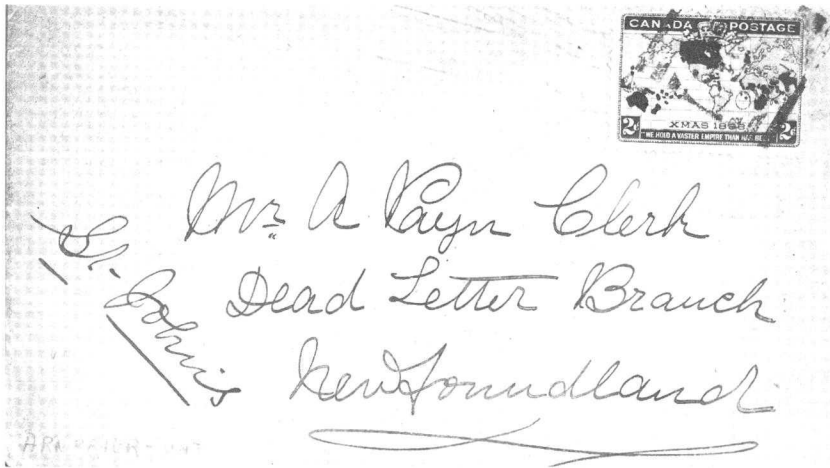 CANADA POSTAGE
XMAS 1898
2¢ 2¢
"WE HOLD A VASTER EMPIRE THAN HAS BEEN"
Mr. A Payn Clerk
Dead Letter Branch
Newfoundland
St. John's